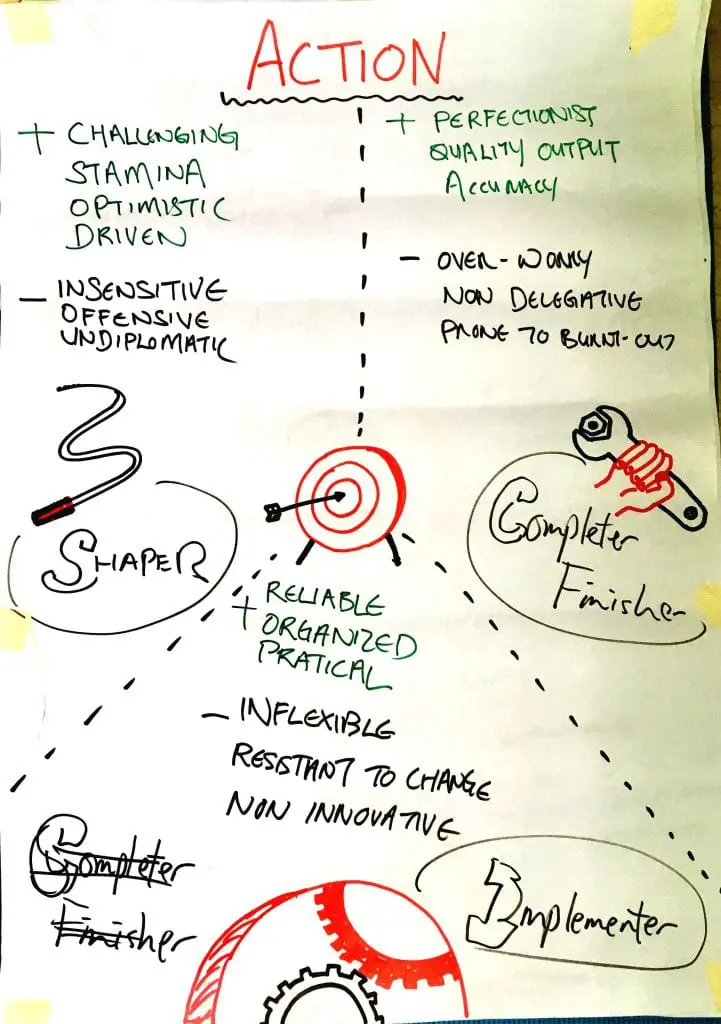 ACTION
+ CHALLENGING
STAMINA
OPTIMISTIC
DRIVEN
- INSENSITIVE
OFFENSIVE
UNDIPLOMATIC
SHAPER
+ PERFECTIONIST
QUALITY OUTPUT
ACCURACY
- OVER-WORRY
NON DELEGATIVE
PRONE TO BURNT-OUT
Completer
Finisher
RELIABLE
+ ORGANIZED
PRATICAL
- INFLEXIBLE
RESISTANT TO CHANGE
NON INNOVATIVE
Completer
Finisher
Implementer